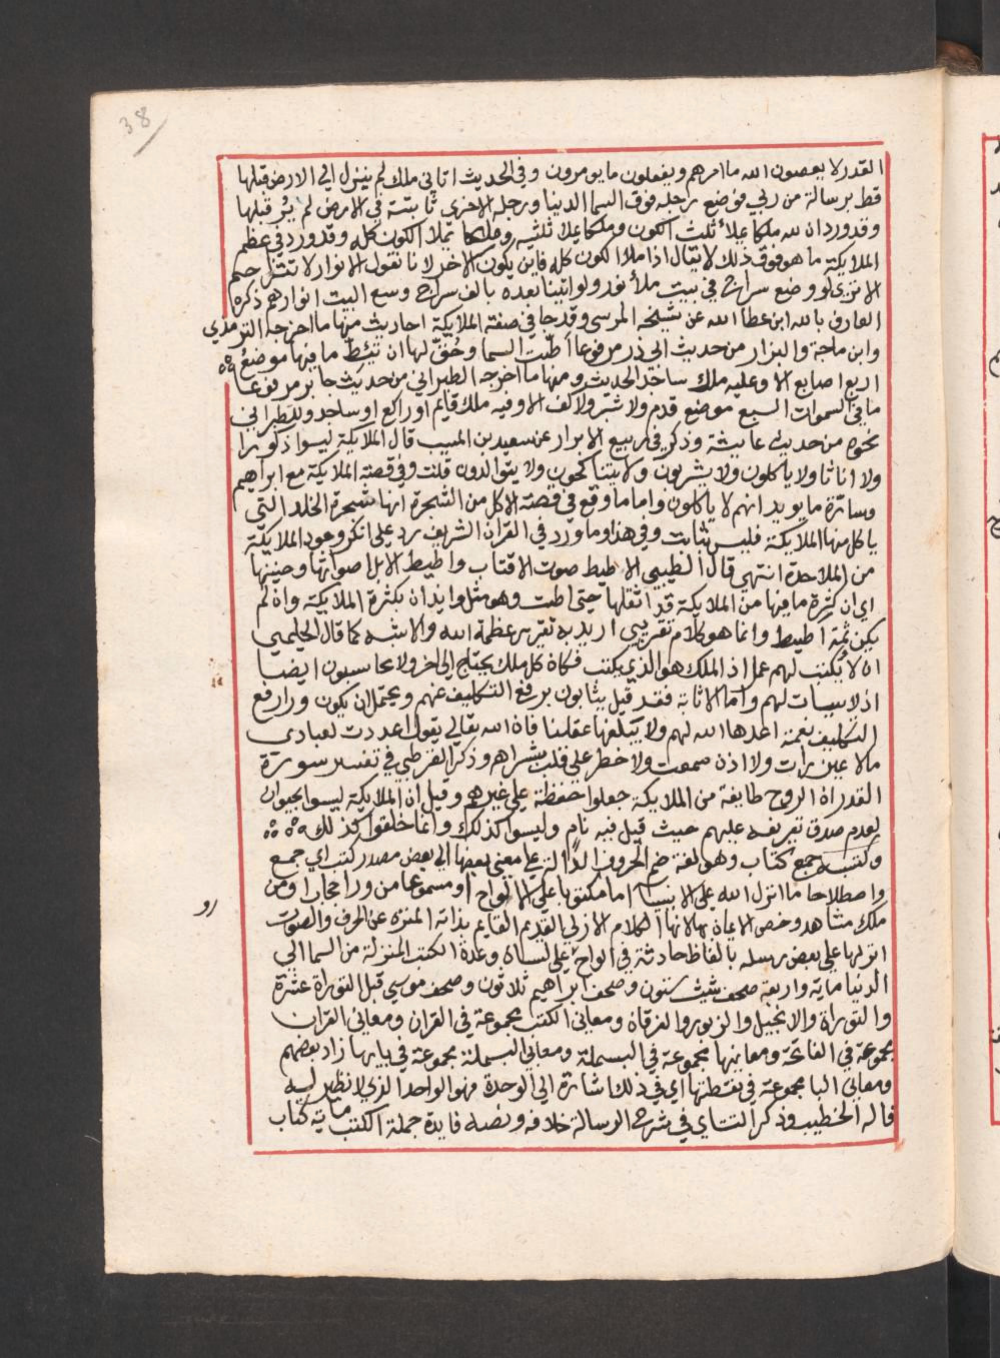 38
القدر لا يعصون الله ما امرهم ويفعلون ما يومرون وفي الحديث اتاني ملك لم ينزل الي الارض قبلها
قط برسالة من ربي فوضع رجله فوق السما الدنيا ورجله الاخري ثابتة في الارض لم يرفعها
وقد ورد ان لله ملكا يملأ ثلث الكون وملكا يملا ثلثيه وملكا يملا الكون كله وقد ورد في عظم
الملايكة ما هو فوق ذلك لا يقال اذا ملا الكون كله فاين يكون الاخر لانا نقول الانوار لا تتزاحم
الا تري لو وضع سراج في بيت ملأ نور ولو اتينا بعده بالف سراج وسع البيت انوارهم ذكره
العارف بالله ابن عطا الله عن شيخه المرسي وقد جا في صفة الملايكة احاديث منها ما اخرجه الترمذي
وابن ماجة والبزار من حديث ابي ذر مرفوعا أطت السما وحُق لها ان تئط ما فيها موضعُ
اربع اصابع الا وعليه ملك ساجد الحديث ومنها ما اخرجه الطبراني من حديث جابر مرفوعا
ما في السموات السبع موضع قدم ولا شبر ولا كف الا وفيه ملك قايم او راكع او ساجد وللطبراني
نحوه من حديث عايشة وذكر في ربيع الابرار عن سعيد بن المسيب قال الملايكة ليسوا ذكورا
ولا اناثا ولا ياكلون ولا يشربون ولا يتناكحون ولا يتوالدون قلت وفي قصة الملايكة مع ابراهيم
وسارة ما يويد انهم لا ياكلون واما ما وقع في قصة الاكل من الشجرة انها شجرة الخلد التي
ياكل منها الملايكة فليس بثابت وفي هذا وما ورد في القران الشريف رد علي انكر وجود الملايكة
من الملاحدة انتهي قال الطيبي الاطيط صوت الاقتاب واطيط الابل اصواتها وحنينها
اي ان كثرة ما فيها من الملايكة قد اثقلها حتي اطت وهو مثل وايذان بكثرة الملايكة وان لم
يكن ثمة اطيط وانما هو كلام تقريبي اريد به تقرير عظمة الله والاشبه كما قال الحليمي
ان لا يكتب لهم عمل اذ الملك هو الذي يكتب فكان كل ملك يحتاج الي اخر ولا يحاسبون ايضا
اذ لا سيات لهم واما الاثابة فقد قيل يثابون برفع التكليف عنهم ويحتمل ان يكون ورا رفع
التكليف نعمة اعدها الله لهم ولا يتبلغها عقلنا فان الله تعالي يقول اعددت لعبادي
مالا عين رات ولا اذن سمعت ولا خطر علي قلب بشر اهـ وذكر القرطبي في تفسير سورة
القدر ان الروح طايفة من الملايكة جعلوا حفظة علي غيرهم وقيل ان الملايكة ليسوا بحيوان
لعدم صدق تعريفه عليهم حيث قيل فيه نام وليسوا كذلك وانما خلقوا كذلك
وكتبه جمع كتاب وهو لغة ضم الحروف الدالة علي معني بعضها الي بعض مصدر كتب اي جمع
واصطلاحا ما انزل الله علي الانبيا اما مكتوبا علي الالواح او مسموعا من ورا حجاب او من
ملك مشاهد وخص الايمان بها لانها الكلام الازلي القديم القايم بذاته المنزه عن الحرف والصوت
انزلها علي بعض رسله بالفاظ حادثة في الواح علي لسان وعدة الكتب المنزلة من السما الي
الدنيا ماية واربعة صحف شيث ستون وصحف ابراهيم ثلاثون وصحف موسي قبل التوراة عشرة
والتوراة والانجيل والزبور والفرقان ومعاني الكتب مجموعة في القران ومعاني القران
مجموعة في الفاتحة ومعانيها مجموعة في البسملة ومعاني البسملة مجموعة في بايها زاد بعضهم
ومعاني البا مجموعة في نقطتها اي في ذلك اشارة الي الوحدة وهو الواحد الذي لا نظير ليه
قاله الخطيب وذكر التتاي في شرح الرسالة خلافه ونصه فايدة جملة الكتب ماية كتاب
او